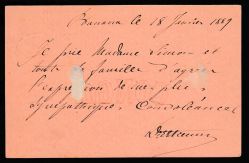 Banana le 18 février 1889
Je prie Madame Simon et
toute la famille d'agréer
l'expression de mes plus
sympathiques Condoléances